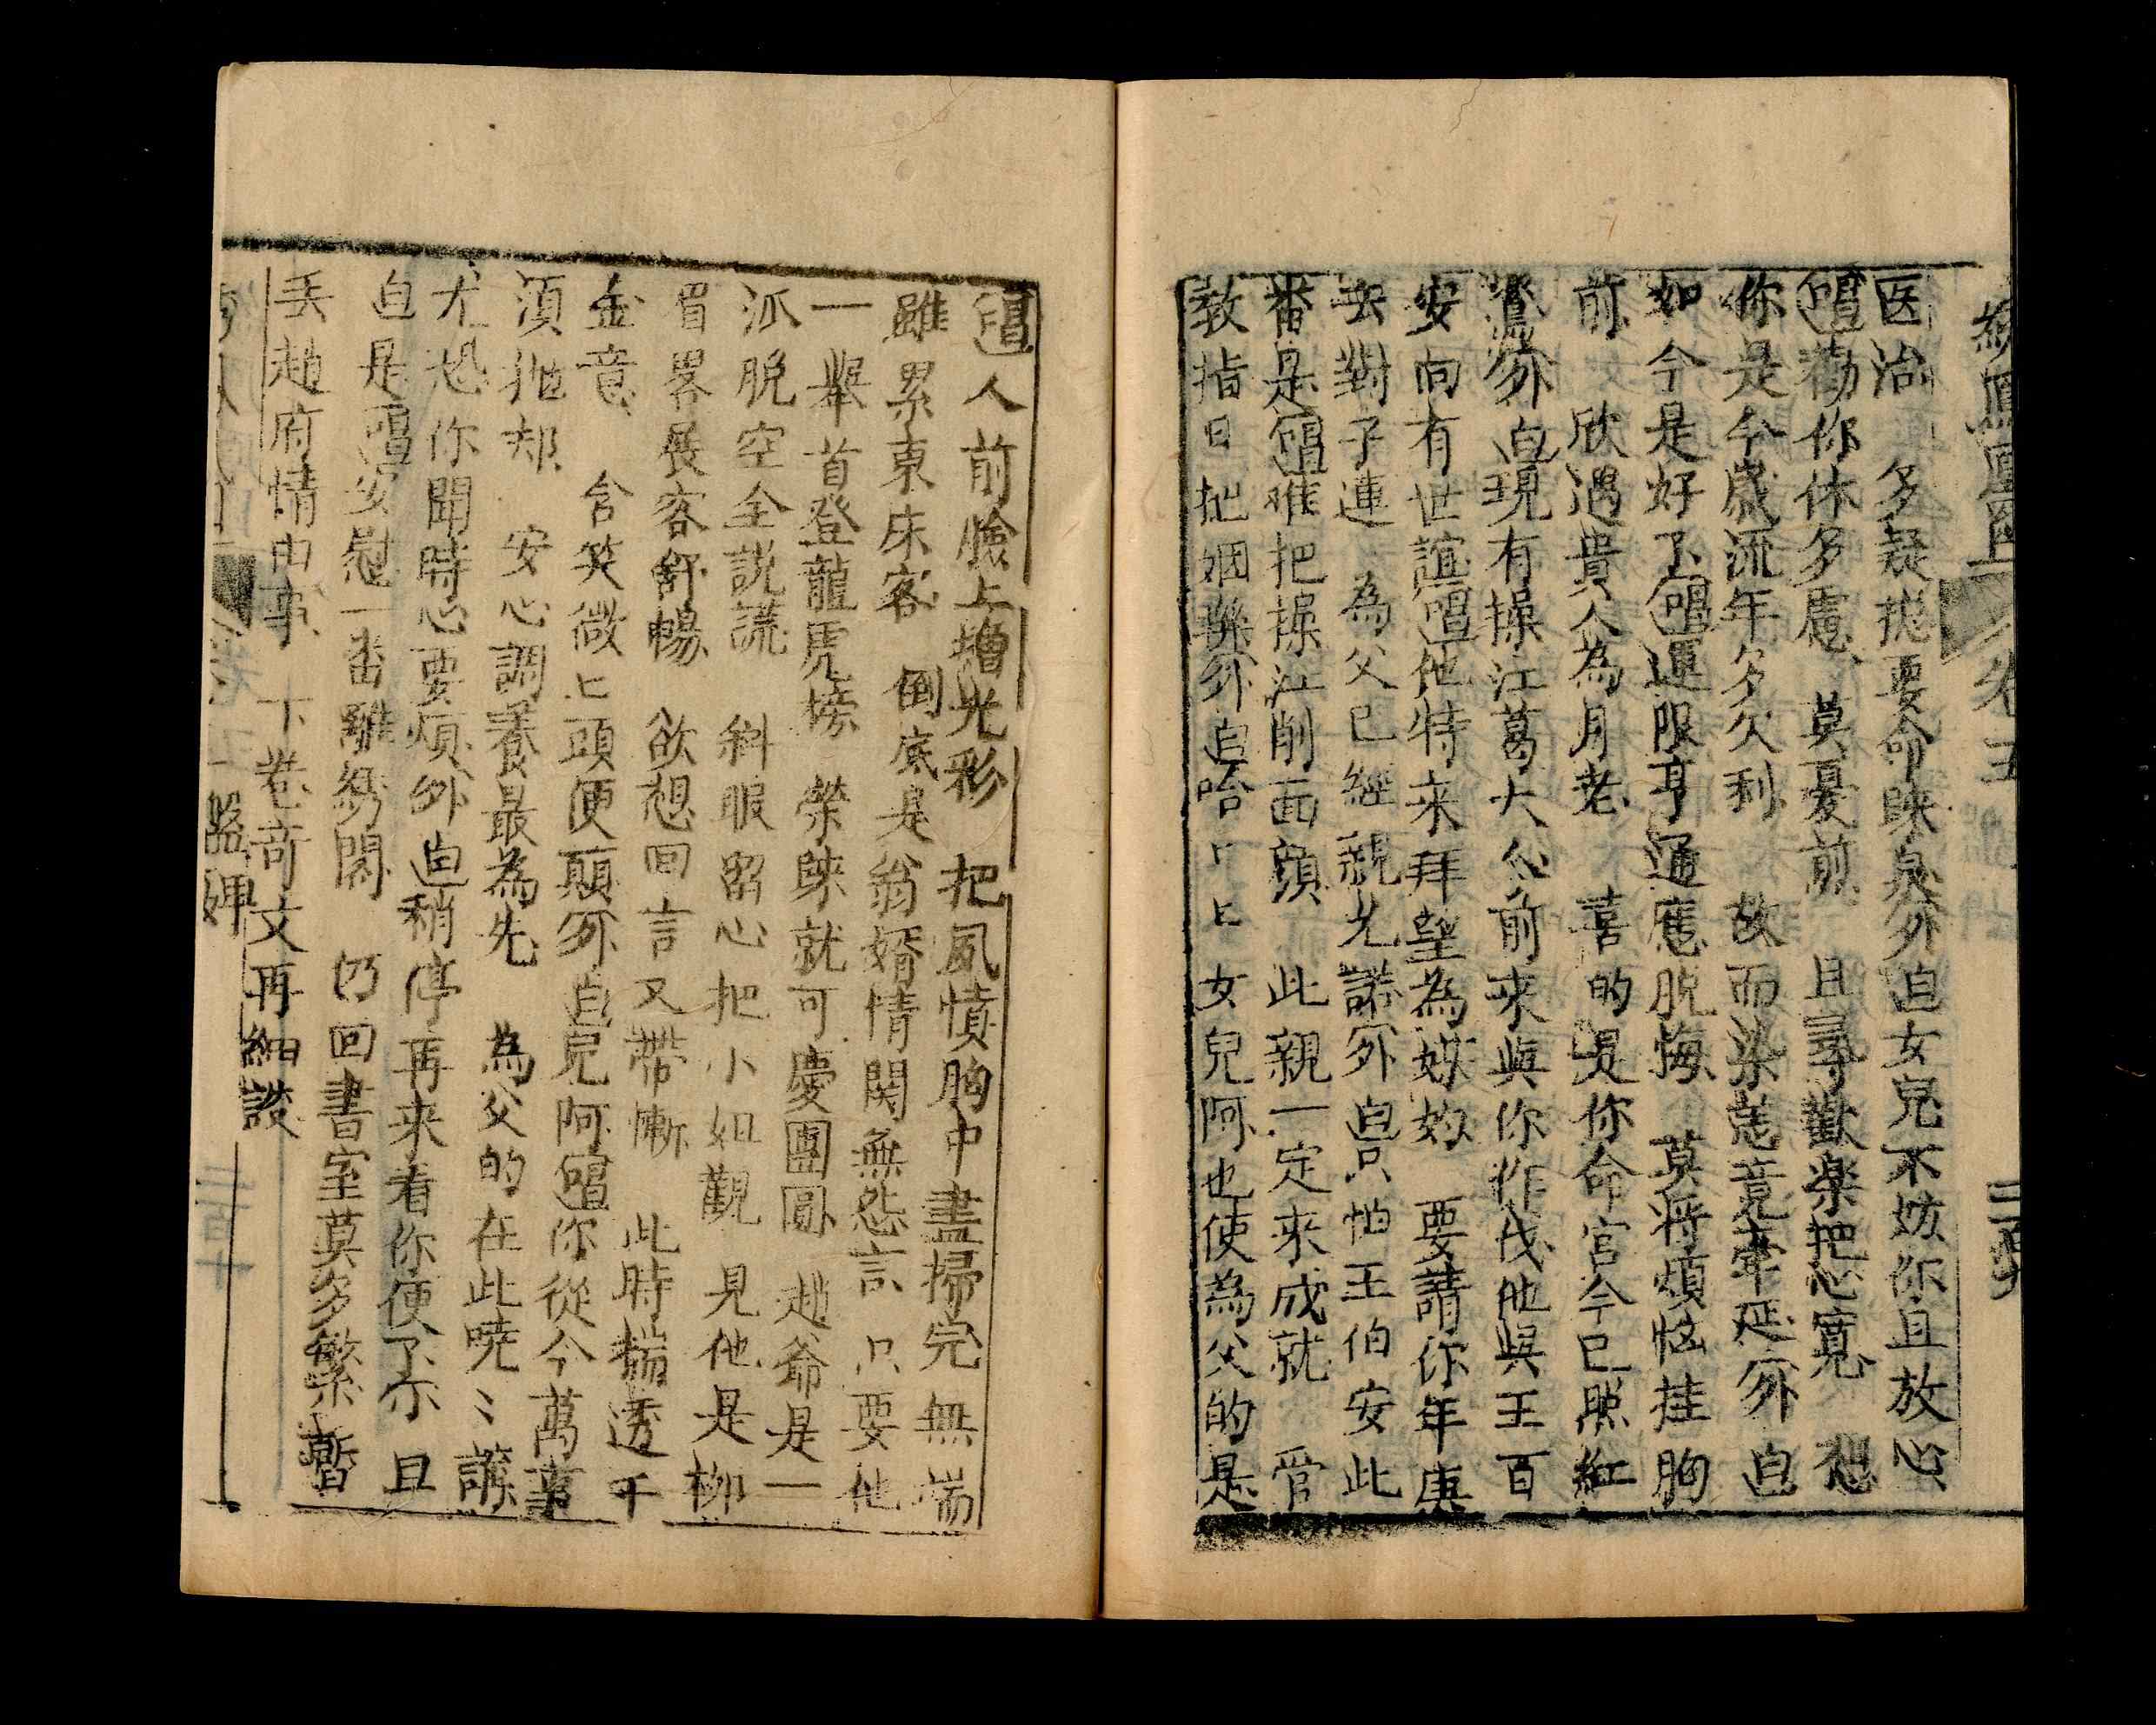 医治　多疑搃要命睞泉外白女兒不妨你且放心
唱勸你休多慮　莫憂煎　且尋歡楽把心寬　想
你是今歲流年多欠利　故而染恙竟牽延外白
如今是好了唱運限亨通應脫悔　莫將煩惱挂胸
前　欣遇貴人為月老　喜的是你命宮今已照紅
鸞外白現有操江葛大公前來與你作伐他與王百
安向有世誼唱他特来拜望為媒妁　要請你年庚
去對子連　為父已經親允諾外白只怕王伯安此
番是唱难把操江削面顏　此親一定来成就　管
教指日把姻聯外白哈ㄏ匕女兒阿也使為父的是
唱人前臉上增光彩　把夙憤胸中盡掃完無端
雖累東床客　倒底是翁婿情関無怨言　只要他
一舉首登龍虎塝　榮睞就可慶團圓　趙爺是一
派脫空全説謊　斜眼留心把小姐觀　見他是柳
眉畧展客舒暢　欲想回言又帶慚　此時揣透千
金意　含笑微匕頭便顛外白兒阿唱你從今萬事
須抛却　安心調養最為先　為父的在此曉〻譊
尤恐你聞時心要煩外白稍停再来看你便了小旦
白是唱安慰一番離綉閣　仍回書室莫多繁暫
丢趙府情由事　下卷奇文再細談